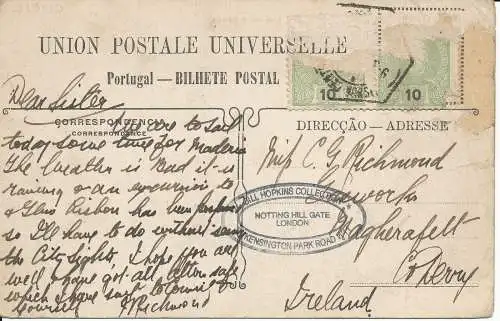 UNION POSTALE UNIVERSELLE
Portugal — BILHETE POSTAL
10
10
Dear Sister
CORRESPONDENCE
CORRESPONDANCE
We are to sail
today some time for Madeira
The weather is Bad it is
raining & an excursion to
has been
so I'll have to do without seeing
the City Sights I hope you are
well I have got all letters safe
which I have sent to
yourself Richmond
DIRECÇÃO — ADRESSE
Miss C. G. Richmond
Magherafelt
Co Derry
Ireland
BILL HOPKINS COLLECTION
NOTTING HILL GATE
LONDON
KENSINGTON PARK ROAD